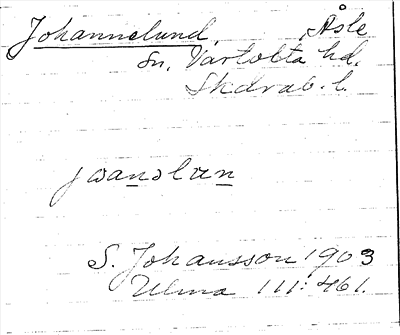 Johannelund, Åsle
Sn, Vartofta hd.
Skarab. l.
S. Johansson 1903
Ulma 111:461.